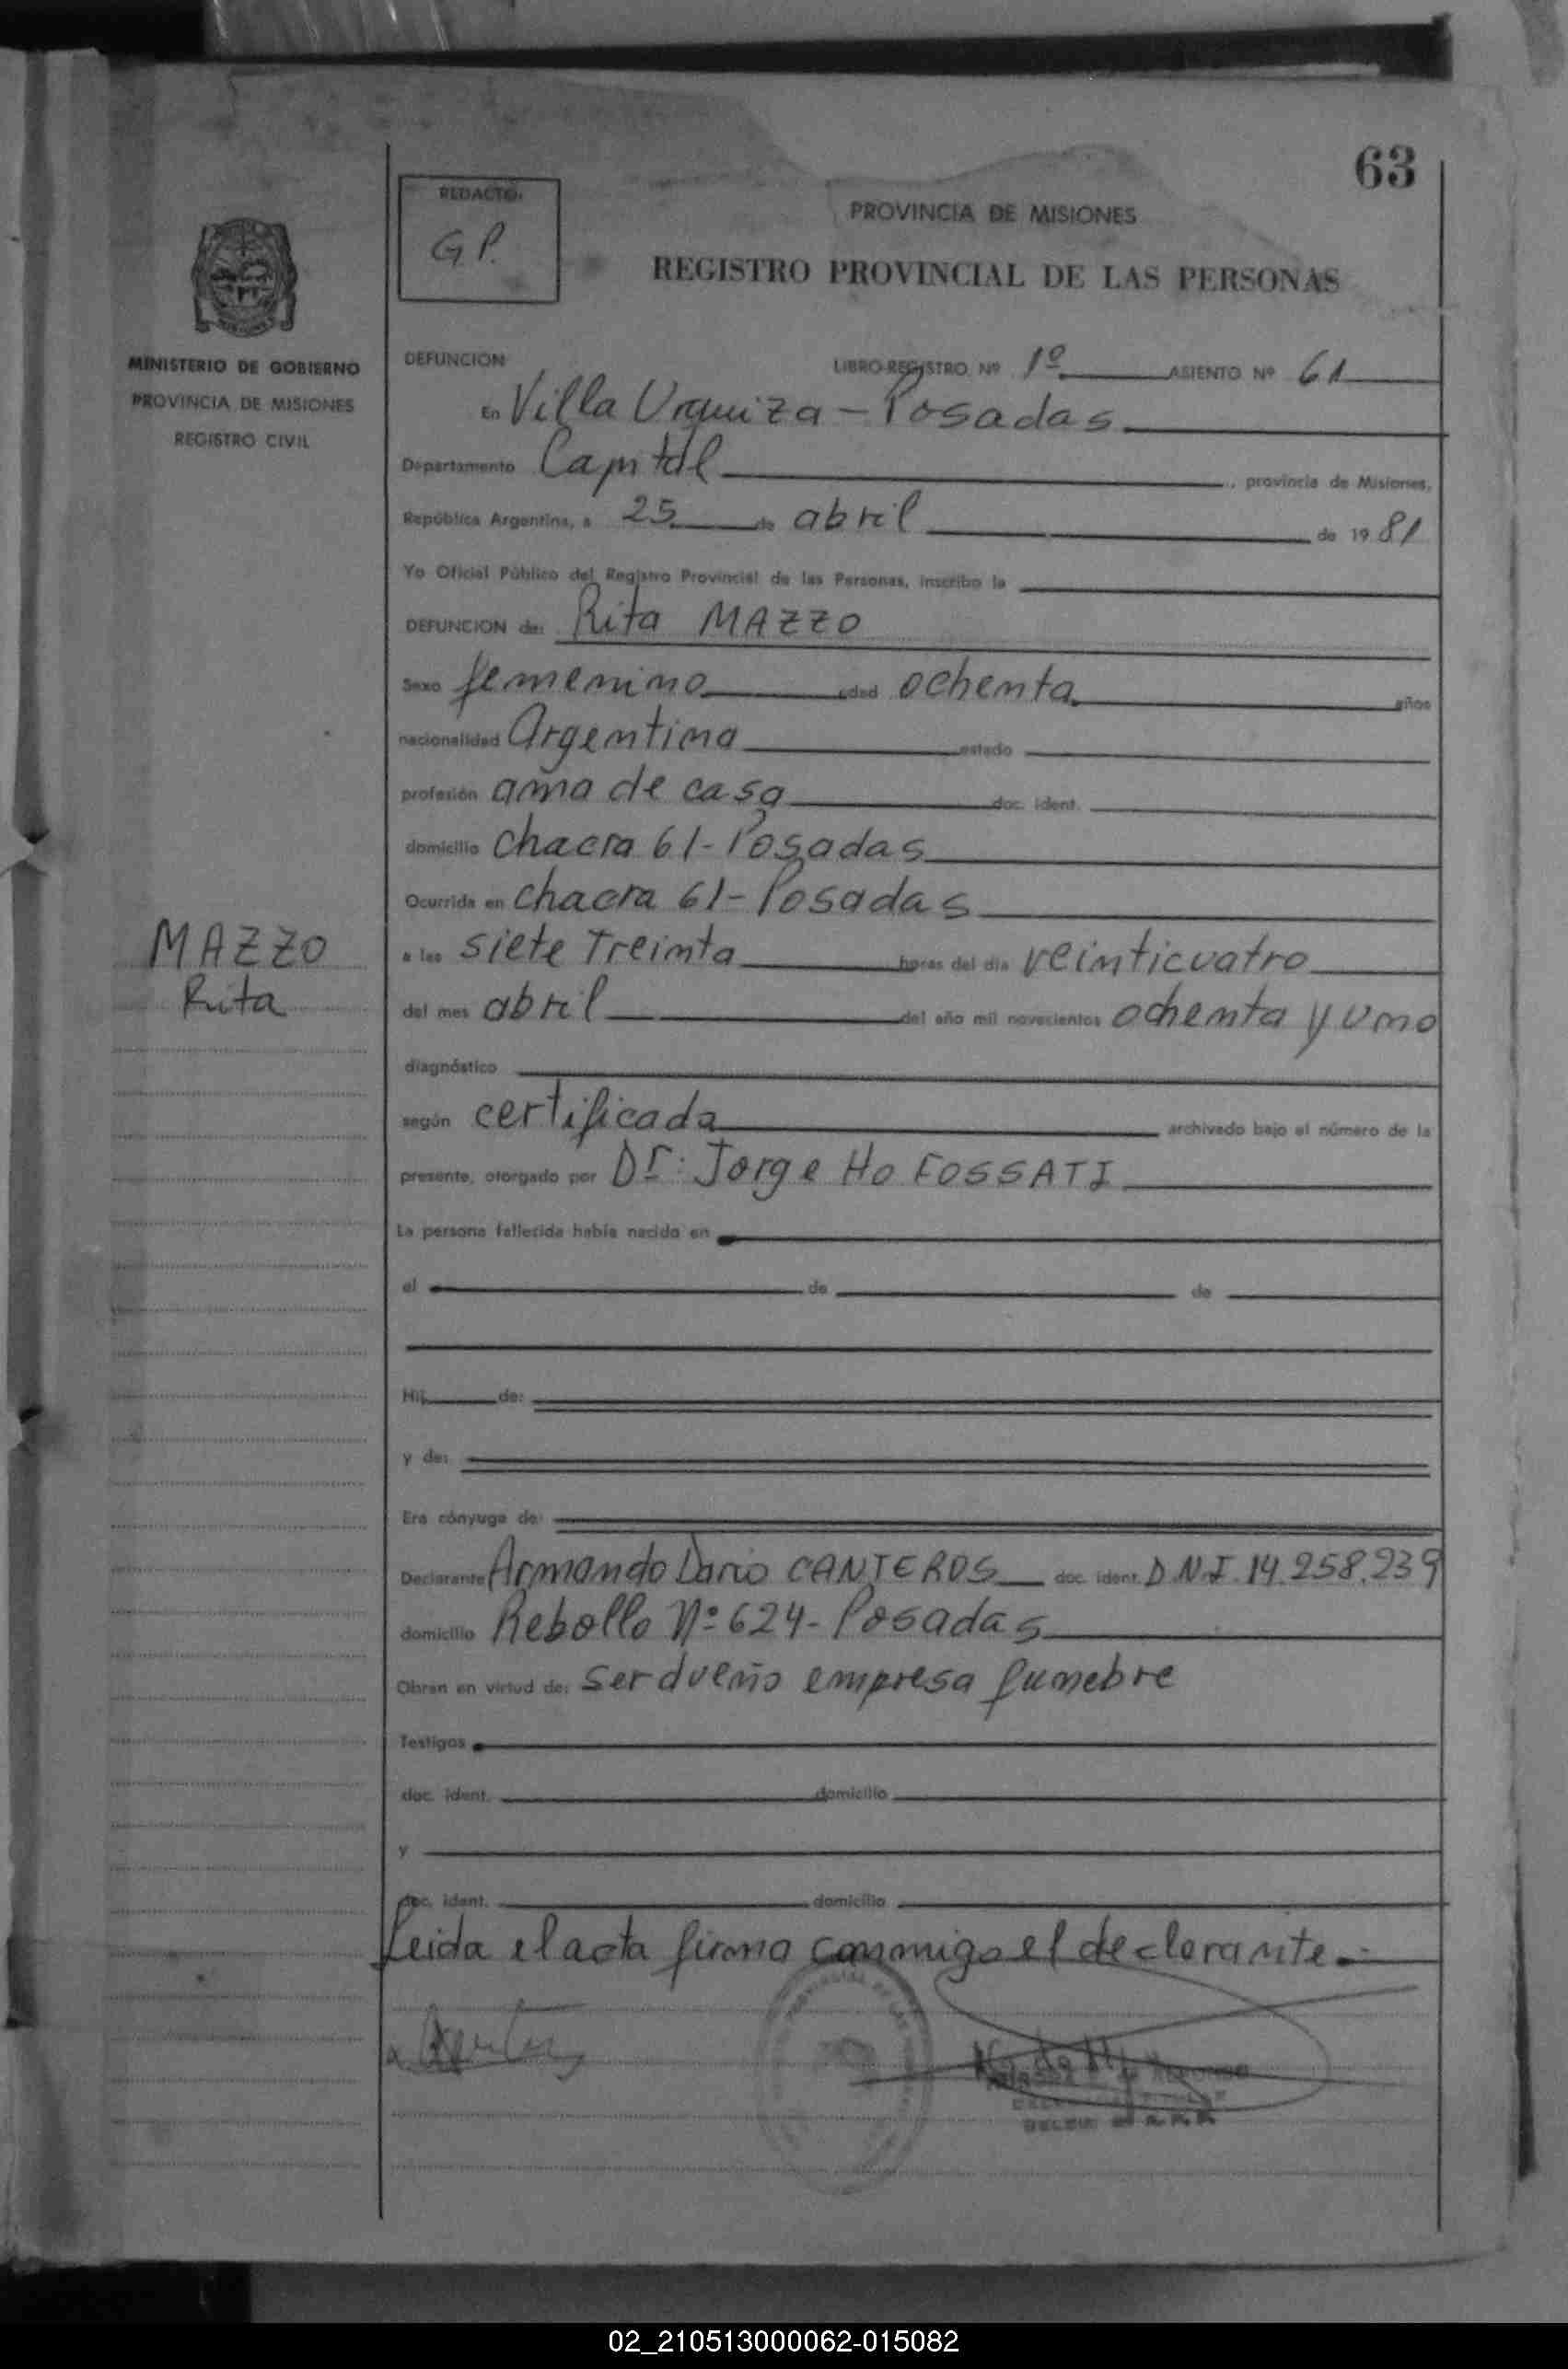 63
REDACTO:
G.P.
PROVINCIA DE MISIONES
REGISTRO PROVINCIAL DE LAS PERSONAS
MINISTERIO DE GOBIERNO
PROVINCIA DE MISIONES
REGISTRO CIVIL
DEFUNCION LIBRO-REGISTRO Nº 1º ASIENTO Nº 61
En Villa Urquiza - Posadas
Departamento Capital, provincia de Misiones,
República Argentina, a 25 de abril de 1981
Yo Oficial Público del Registro Provincial de las Personas, inscribo la
DEFUNCION de: Rita MAZZO
Sexo femenino edad ochenta años
nacionalidad Argentina estado
profesión ama de casa doc. ident.
domicilio chacra 61 - Posadas
Ocurrida en chacra 61 - Posadas
MAZZO
Rita
a las siete Treinta horas del día veinticuatro
del mes abril del año mil novecientos ochenta y uno
diagnóstico
según certificada archivado bajo el número de la
presente, otorgado por Dr: Jorge Ho FOSSATI
La persona fallecida había nacido en
el de de
Hij de:
y de:
Era cónyuge de:
Declarante Armando Dario CANTEROS doc. ident. D.N.I. 14.258.239
domicilio Rebollo Nº 624 - Posadas
Obran en virtud de: ser dueño empresa funebre
Testigos
doc. ident. domicilio
y
doc. ident. domicilio
Leida el acta firma conmigo el declarante.-
02_210513000062-015082